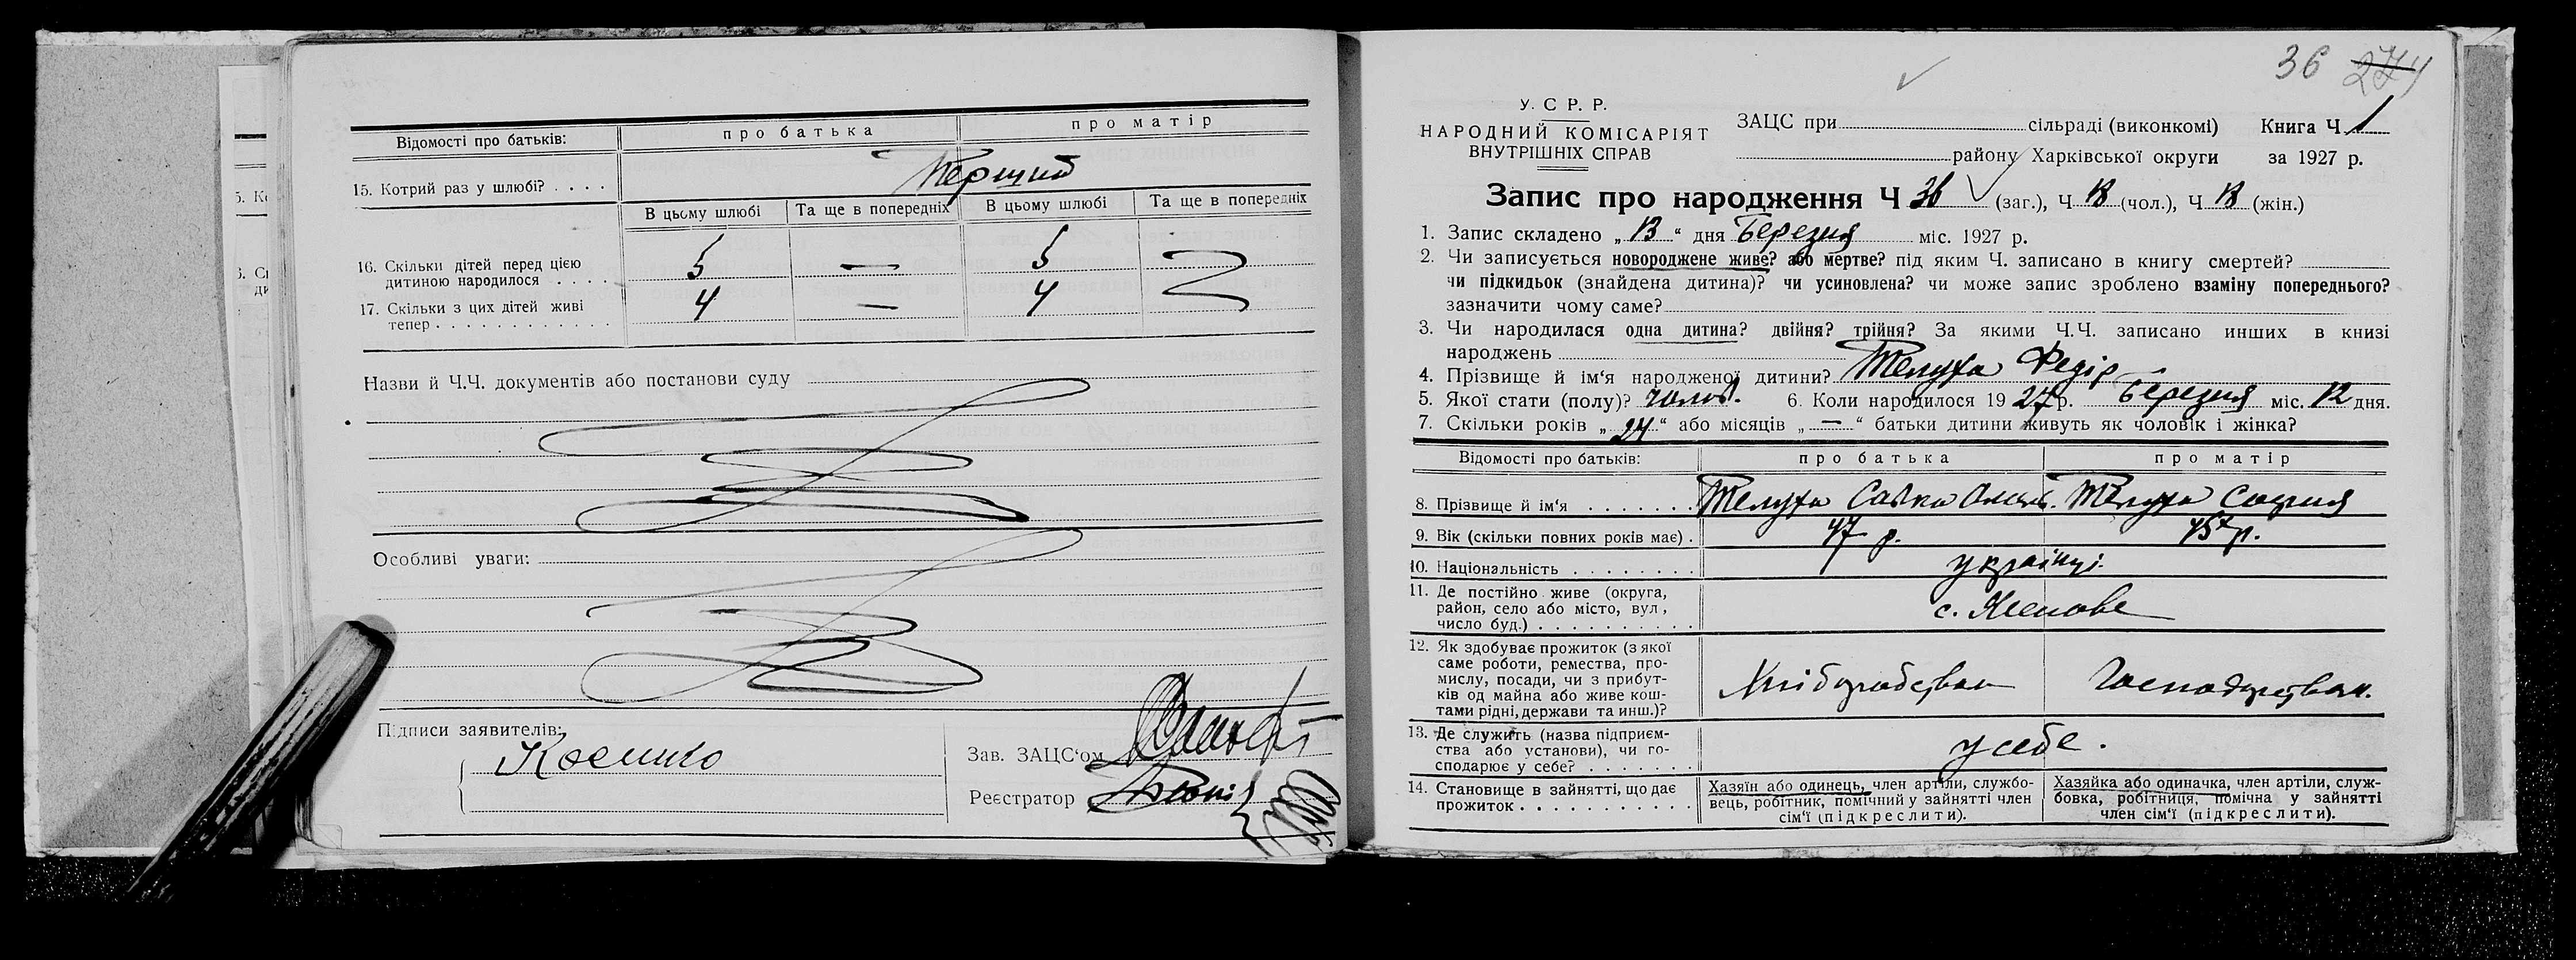 Відомості про батьків:
про батька
про матір
15. Котрий раз у шлюбі? . . . .
Перший
В цьому шлюбі
Та ще в попередніх
В цьому шлюбі
Та ще в попередніх
16. Скільки дітей перед цією
дитиною народилося . . . .
5 — 5
17. Скільки з цих дітей живі
тепер . . . . . . . . . . . . .
4 — 4
Назви й Ч.Ч. документів або постанови суду
Особливі уваги:
Підписи заявителів:
Зав. ЗАЦС'ом
Реєстратор
36 274
У. С. Р. Р.
НАРОДНИЙ КОМІСАРІЯТ
ВНУТРІШНІХ СПРАВ
ЗАЦС при сільраді (виконкомі)
району Харківської округи
Книга Ч 1
за 1927 р.
Запис про народження Ч 36 (заг.), Ч 18 (чол.), Ч 18 (жін.)
1. Запис складено „13“ дня Березня міс. 1927 р.
2. Чи записується новороджене живе? або мертве? під яким Ч. записано в книгу смертей?
чи підкидьок (знайдена дитина)? чи усиновлена? чи може запис зроблено взаміну попереднього?
зазначити чому саме?
3. Чи народилася одна дитина? двійня? трійня? За якими Ч.Ч. записано инших в книзі
народжень
4. Прізвище й ім'я народженої дитини? Телуха Федір
5. Якої стати (полу)? чолов. 6. Коли народилося 1927 р. Березня міс. 12 дня.
7. Скільки років „24“ або місяців „—“ батьки дитини живуть як чоловік і жінка?
Відомості про батьків:
про батька
про матір
8. Прізвище й ім'я . . . . . . .
Телуха Савка
Телуха София
9. Вік (скільки повних років має) .
47 р.
45 р.
10. Національність . . . . . . . .
українці.
11. Де постійно живе (округа,
район, село або місто, вул,
число буд.) . . . . . . . . . .
12. Як здобуває прожиток (з якої
саме роботи, ремества, про-
мислу, посади, чи з прибут-
ків од майна або живе кош-
тами рідні, держави та инш.)?
Хліборобством
Господарством.
13. Де служить (назва підприєм-
ства або установи), чи го-
сподарює у себе? . . . . . . .
у себе.
14. Становище в зайнятті, що дає
прожиток . . . . . . . . . . .
Хазяїн або одинець, член артіли, службо-
вець, робітник, помічний у зайнятті член
сім'ї (підкреслити).
Хазяйка або одиначка, член артіли, служ-
бовка, робітниця, помічна у зайнятті
член сім'ї (підкреслити).